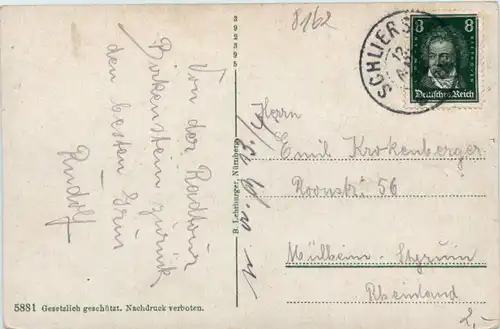 392395
8162
SCHLIERS
8 8
Deutsches Reich
Von der Radtour
Birkenstein zurück
den besten Gruß
Rudolf
B. Lehrburger, Nürnberg
Herrn
Emil Krokenberger
Roonstr. 56
Mülheim-Styrum
Rheinland
5881 Gesetzlich geschützt. Nachdruck verboten.
2,-